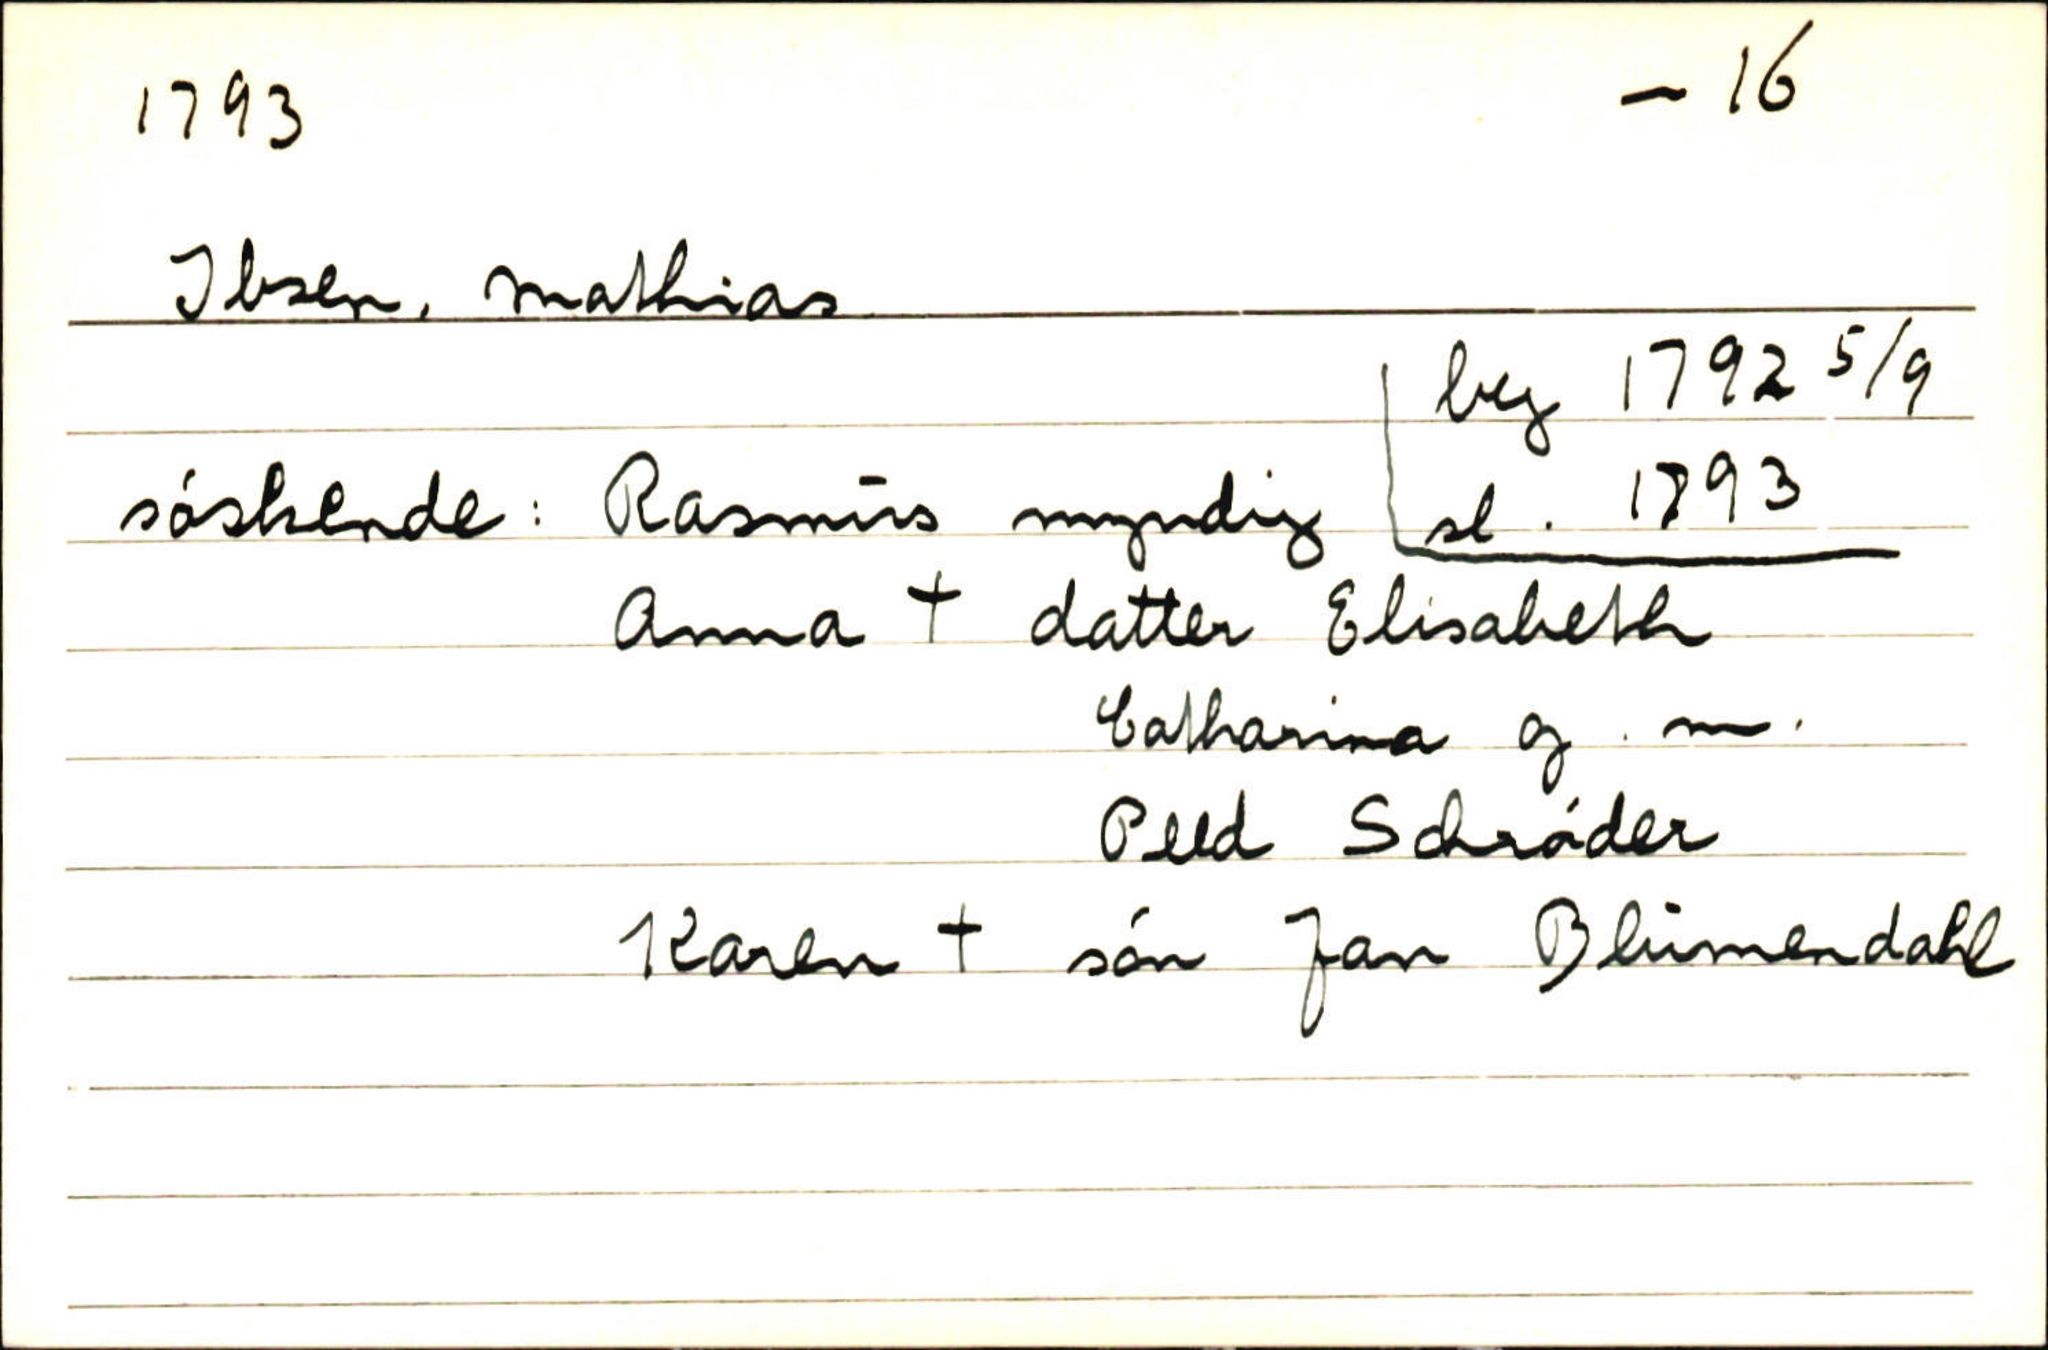 1793 – 16
Ibsen, Mathias
beg 1792 5/9
söskende: Rasmus myndig sl. 1793
Anna † datter Elisabeth
Catharina g. m.
Peed Schröder
Karen † sön Jan Blumendahl